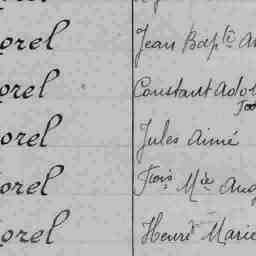 orel Jean Bapte
orel Constant Adol
orel Jules Aimé
orel Fois Mie Aug
orel Henri Marie